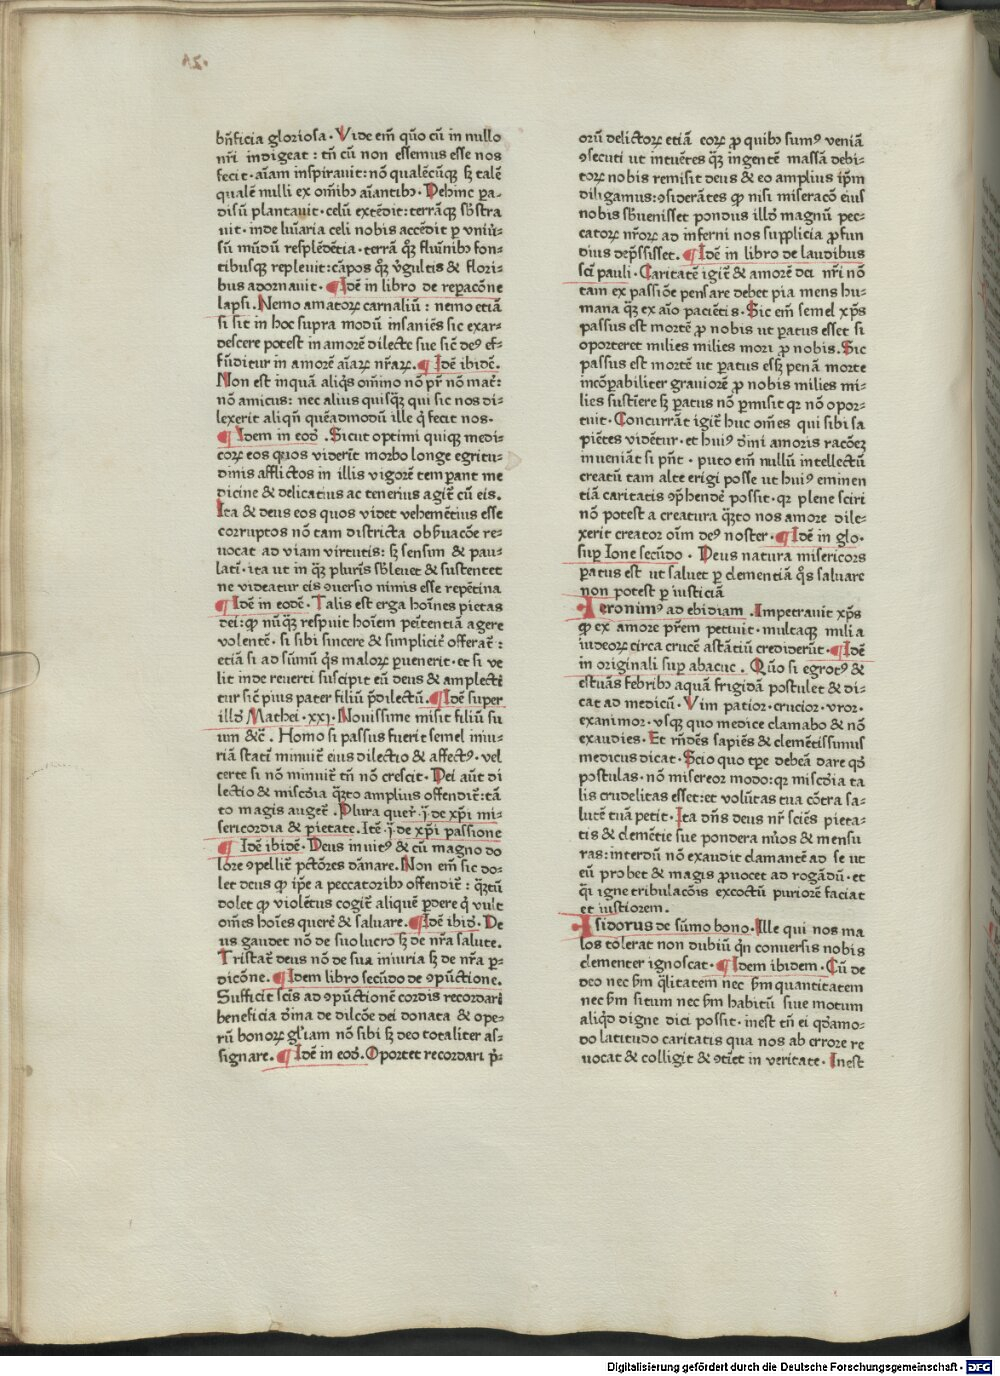 bn̄ficia gloriosa. Vide em̄ qūo cū in nullo
nr̄i indigeat: tn̄ cū non essemus esse nos
fecit. aīam inspirauit: nō qualēcūqꝫ sꝫ talē
qualē nulli ex om̄ibꝫ aīantibꝫ. Dehinc ꝑa-
disū plantauit. celū extēdit: terrāqꝫ sb̄stra
uit. inde lūaria celi nobis accēdit ꝑ vniū̓-
sū mūdū resplēdētia. terrā qꝫ fluūnibꝫ fon-
tibusqꝫ repleuit: cāpos qꝫ v̓gultis & flori-
bus adornauit. ¶ Idē in libro de reꝑacōne
lapsi. Nemo amatoꝝ carnaliū: nemo etiā
si sit in hoc supra modū insaniēs sic exar-
descere potest in amorē dilecte sue sic̄ deꝰ ef-
fūditur in amorē aīaꝝ nr̄aꝝ. ¶ Idē ibidē.
Non est inquā aliq̄s om̄ino nō pr̄ nō mat̄:
nō amicus: nec alius quisqꝫ qui sic nos di-
lexerit aliqn̄ quēadmodū ille q̓ fecit nos.
¶ Idem in eod̄. Sicut optimi quiqꝫ medi-
coꝝ eos quos viderīt morbo longe egritu-
dinis afflictos in illis vigorē temperant me
dicine & delicatius ac tenerius agit̄ cū eis.
Ita & deus eos quos videt vehemētius esse
corruptos nō tam districta obẜuacōe re-
uocat ad viam virtutis: sꝫ sensim & pau-
latī. ita ut in qꝫ plurīs sb̄leuet & sustentet
ne videatur eis ꝯuersio nimis esse repētina
¶ Idē in eodē. Talis est erga hoīnes pietas
dei: ꝙ nūqꝫ respuit hoīem peītentiā agere
volentē. si sibi sincere & simplicit̄ offerat̄:
etiā si ad sūmū q̄s maloꝝ ꝑuenerit. et si ve
lit inde reuerti suscipit eū deus & amplecti
tur sic̄ pius pater filiū p̄dilectū. ¶ Idē super
illd̓ Mathei. xxj. Nouissime misit filiū su
um &c̄. Homo si passus fuerit semel iniu-
riā statī minuit̄ eius dilectio & affectꝰ. vel
certe si nō minuit̄ tn̄ nō crescit. Dei aūt di
lectio & miscd̓ia qꝫto amplius offendit̄: tā
to magis auget̄. Plura quer̄. ij. de xp̄i mi-
sericordia & pietate. Itē. ij. de xp̄i passione
¶ Idē ibidē. Deus inuitꝰ & cū magno do
lore ꝯpellit̄ pctōres dānare. Non em̄ sic do-
let deus ꝙ ip̄e a peccatoribꝫ offendit̄: qꝫtū
dolet ꝙ violētus cogit̄ aliquē ꝑdere q̓ vult
om̄es hoīes querē & saluare. ¶ Idē ibid̓. De
us gaudet nō de suo lucro sꝫ de nr̄a salute.
Tristat̄ deus nō de sua iniuria sꝫ de nr̄a ꝑ-
dicōne. ¶ Idem libro secūdo de ꝯpūctione.
Sufficit scīs ad ꝯpūctionē cordis recordari
beneficia d̓ina de dilcōe dei donata & ope-
rū bonoꝝ gl̓iam nō sibi sꝫ deo totaliter as-
signare. ¶ Idē in eod̓. Oportet recordari p̄-
orū delictoꝝ etiā eoꝝ ꝓ quibꝫ sumꝰ veniā
ꝯsecuti ut intuētes qꝫ ingentē massā debi-
toꝝ nobis remisit deus & eo amplius ip̄m
diligamus: ꝯsiderātes ꝙ nisi miseracō eius
nobis sb̄uenisset pondus illd̓ magnū pec-
catoꝝ nr̄oꝝ ad inferni nos supplicia ꝓfun
dius dep̄ssisset. ¶ Idē in libro de laudibus
scī pauli. Caritatē igit̄ & amorē dei nr̄i nō
tam ex passiōe pensare debet pia mens hu-
mana qꝫ ex aīo paciētis. Sic em̄ semel xp̄s
passus est mortē ꝓ nobis ut ꝑatus esset si
oporteret milies milies mori ꝓ nobis. Sic
passus est mortē ut ꝑatus essꝫ penā morte
incōꝑabiliter grauiorē ꝓ nobis milies mi-
lies sustīere sꝫ ꝑatus nō ꝑmisit qꝛ nō opor-
tuit. Concurrāt igit̄ huc om̄es qui sibi sa
piētes vidētur. et huiꝰ d̓ini amoris racōeꝫ
inueniāt si pn̄t. puto em̄ nullū intellectū
creatū tam alte erigi posse ut huiꝰ eminen
tiā caritatis ꝯp̄hendē possit. qꝛ plene sciri
nō potest a creatura qꝫto nos amore dile-
xerit creator oīm deꝰ noster. ¶ Idē in glo.
suꝑ Ione secūdo. Deus natura misericors
ꝑatus est ut saluet ꝑ clementiā q̄s saluare
non potest ꝑ iusticiā
Ieronimꝰ ad ebidiam. Impetrauit xp̄s
ꝙ ex amore pr̄em petiuit. multaqꝫ milia
iudeoꝝ circa crucē astātiū crediderūt. ¶ Idē
in originali suꝑ abacuc. Qūo si egrotꝰ &
estuās febribꝫ aquā frigidā postulet & di-
cat ad medicū. Vim patior. crucior. vror.
exanimor. vsqꝫ quo medice clamabo & nō
exaudies. Et rn̄dēs sapiēs & clemētissimus
medicus dicat. Scio quo tp̄e debeā dare qd̓
postulas. nō misereor modo: qꝛ miscd̓ia ta
lis crudelitas esset: et volūtas tua cōtra sa-
lutē tuā petit. Ita dn̄s deus nr̄ sciēs pieta-
tis & clemētie sue pondera nūos & mensu
ras: interdū nō exaudit clamantē ad se ut
eū probet & magis ꝓuocet ad rogādū. et
q̄i igne tribulacōis excoctū puriorē faciat
et iustiorem.
Isidorus de sūmo bono. Ille qui nos ma
los tōlerat non dubiū qn̄ conuersis nobis
clementer ignoscat. ¶ Idem ibidem. Cū de
deo nec ẜm q̄litatem nec ẜm quantitatem
nec ẜm situm nec ẜm habitū siue motum
aliqd̓ digne dici possit. inest tn̄ ei qd̓amo-
do latitudo caritatis qua nos ab errore re
uocat & colligit & ꝯtīet in veritate. Inest
Digitalisierung gefördert durch die Deutsche Forschungsgemeinschaft - DFG